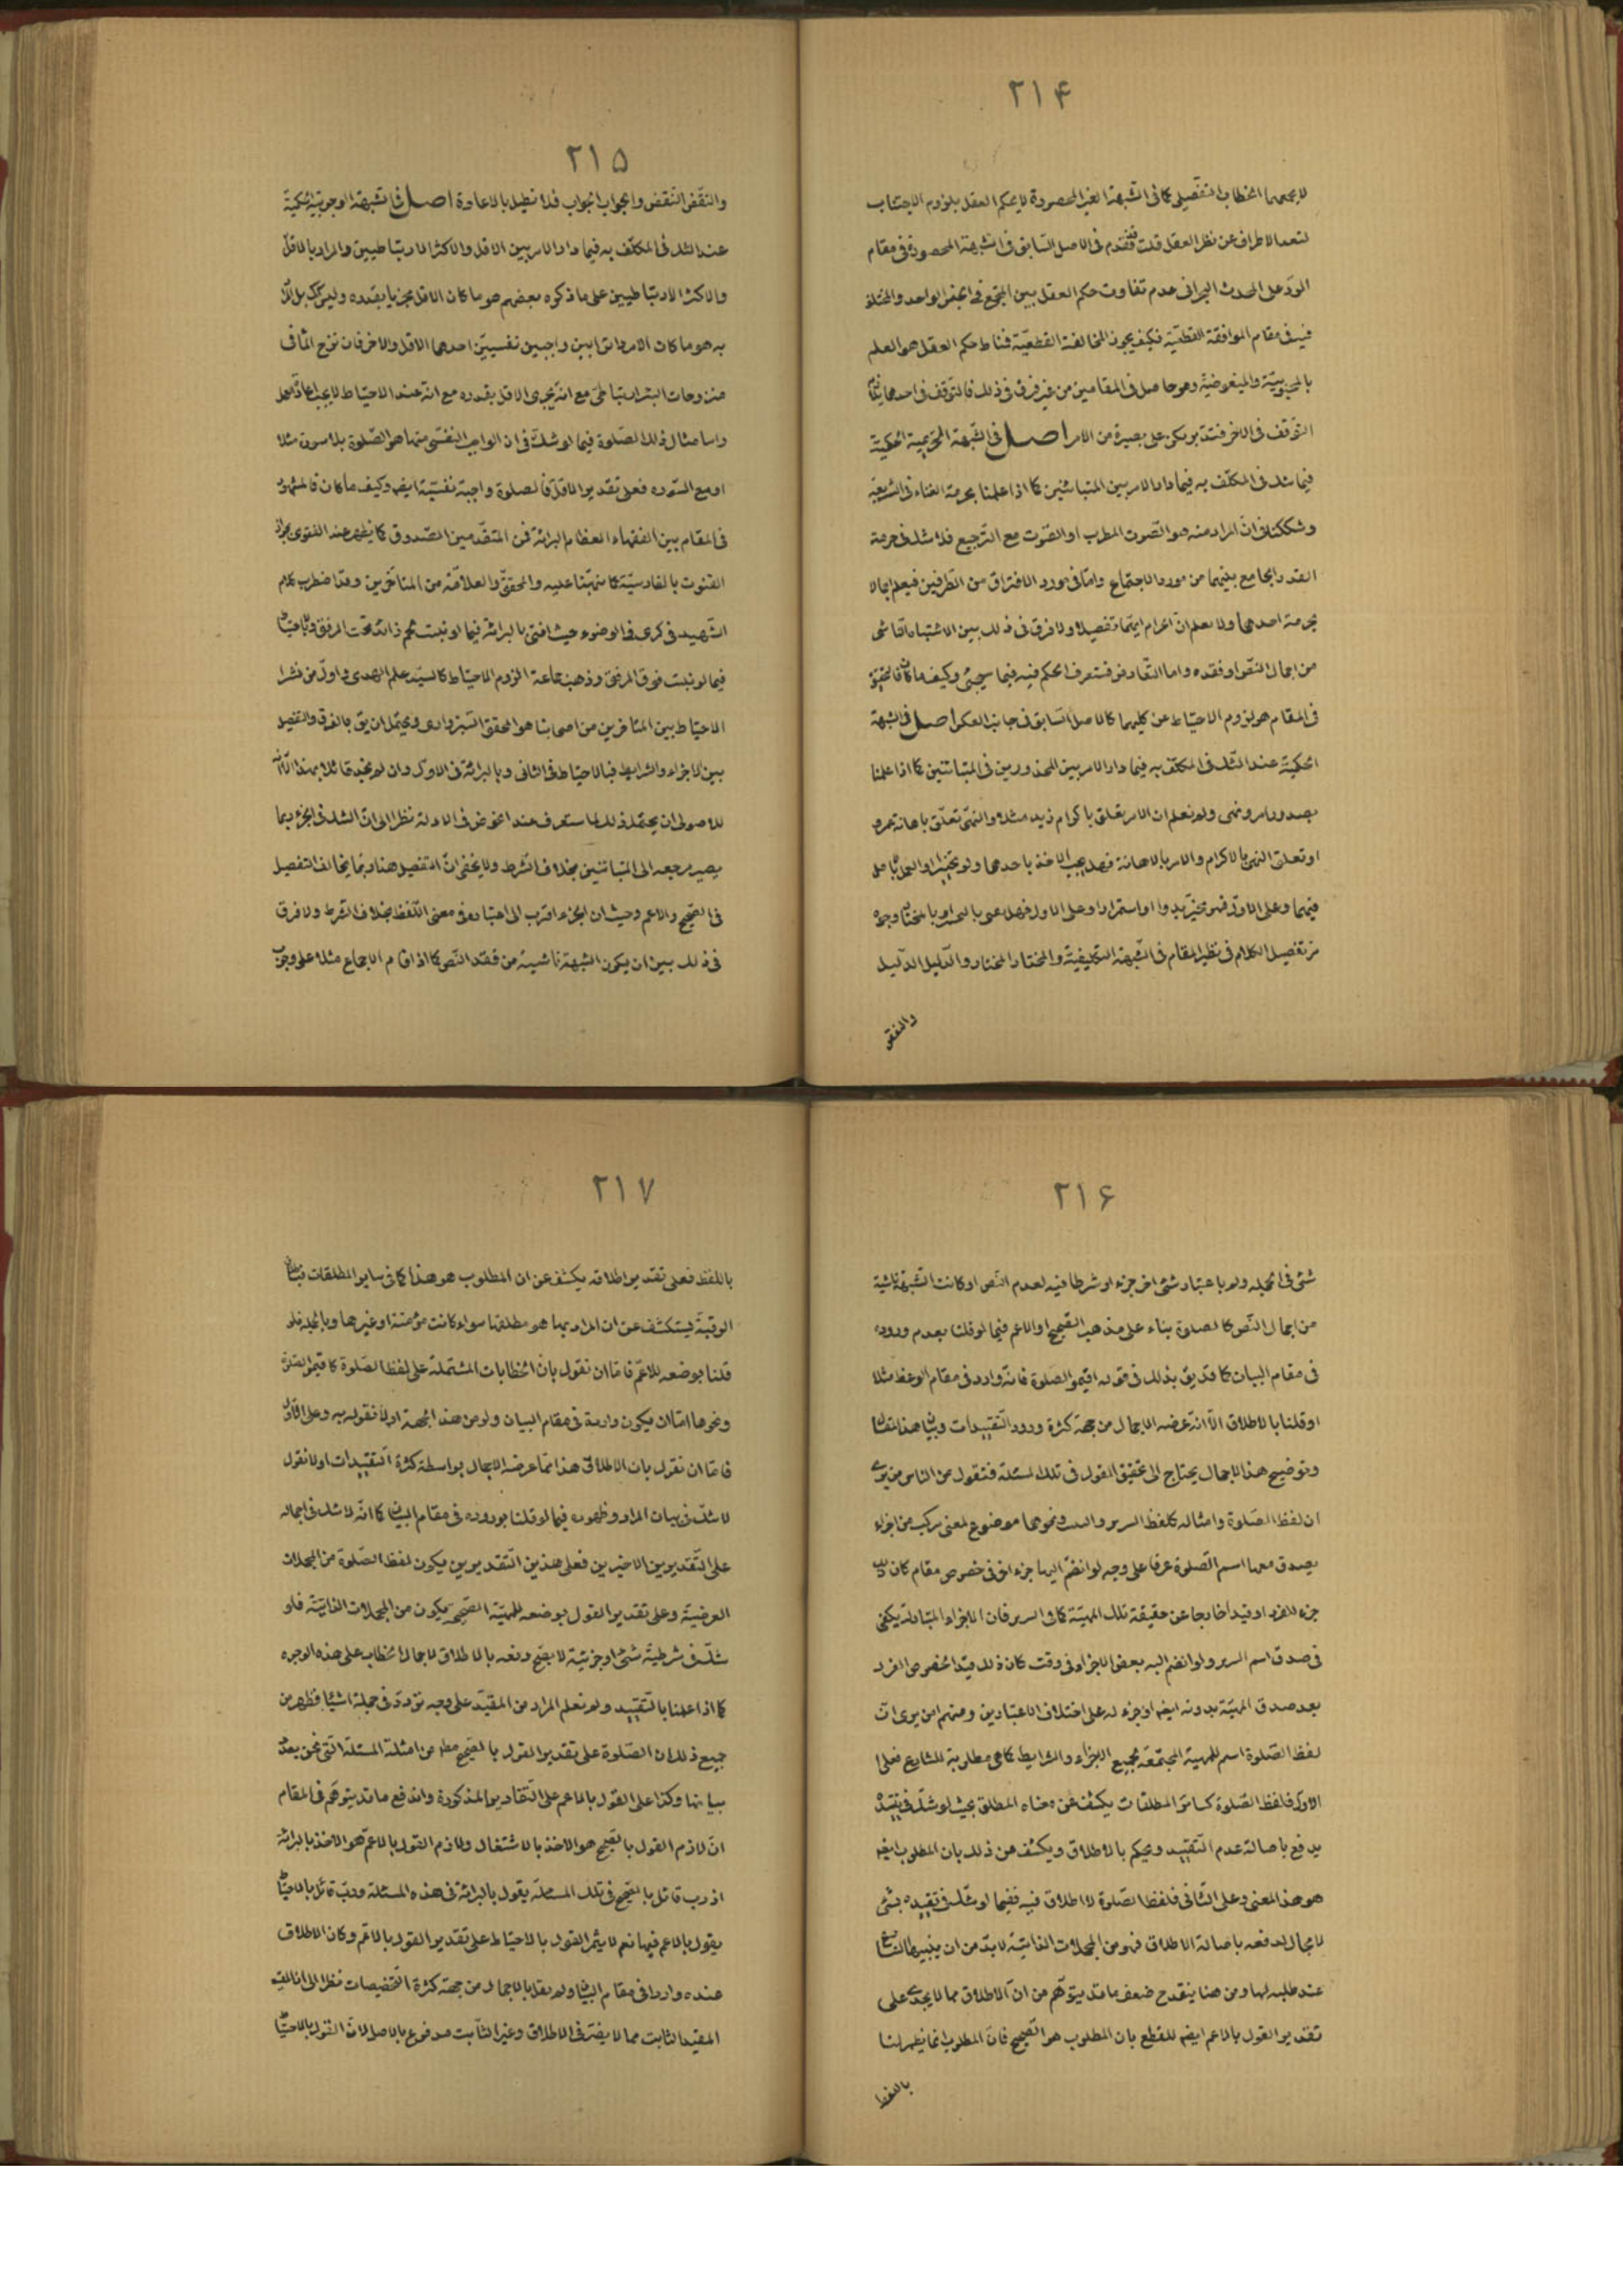 ۲۱۴
لا يجمعهما الخطاب التفصيلى كما فى الشبهة الغير المحصورة لا يحكم العقل بلزوم الاجتناب
لتعدد الاطراف عن نظر العقل قلت قد تقدم فى الاصل السابق فى الشبهة المحصورة فى مقام
الرد على المحدث البحرانى عدم تفاوت حكم العقل بين المجتمع فى الجنس الواحد والمختلف
فيه فى مقام الموافقة القطعيّة فكيف يجوز المخالفة القطعيّة فمناط حكم العقل هو العلم
بالمحبوبيّة والمبغوضيّة وهو حاصل فى المقامين من غير فرق فى ذلك فالتوقف فى احدهما
التوقف فى الاخر فتدبر تكن على بصيرة من الامر اصل فى الشبهة التحريمية الحكمية
فيما شك فى المكلّف به فيما دار الامر بين المتباينين كما اذا علمنا بحرمة الغناء فى الشريعة
وشككنا فى ان المراد منه هو الصوت المطرب او الصوت مع الترجيع فلا شك فى حرمة
القدر الجامع بينهما من مورد الاجتماع وامّا فى مورد الافتراق من الطرفين فيعلم اجمالا
بحرمة احدهما ولا نعلم ان الحرام ايّهما تفصيلا ولا فرق فى ذلك بين الاشتباه الناشى
من اجمال النصّ او فقده واما التعارض فستعرف الحكم فيه فيما سيجئ وكيف ما كان فالتحقيق
فى المقام هو لزوم الاحتياط عن كليهما كالاصل السابق فى جانب العكس اصل فى الشبهة
الحكمية عند الشك فى المكلف به فيما دار الامر بين المحذورين فى المتباينين كما اذا علمنا
بصدور امر ونهى ولم نعلم ان الامر تعلق باكرام زيد مثلا والنهى تعلّق باهانة عمرو
او تعلق النهى بالاكرام والامر بالاهانة فهل يجب الاخذ باحدهما ولو تخييرا والعمل بالاصل
فيهما وعلى الاول فهو مخيّر بدوا او استمرارا وعلى الاول فهل
من تفصيل الكلام فى نظير المقام فى الشبهة التكليفية والمختار المختار والدليل الدليل
والنقض
۲۱۵
والنقض النقض والجواب الجواب فلا نطيل بالاعادة اصل فى الشبهة الوجوبية الحكمية
عند الشك فى المكلّف به فيما دار الامر بين الاقل والاكثر الارتباطيين والمراد بالاقل
والاكثر الارتباطيين على ما ذكره بعضهم هو ما كان الاقل مجزيا بقدره وليس كك بل المراد
به هو ما كان الامر دائرا بين واجبين نفسيين احدهما الاقل والاخر فان نزح المأ فى
منزوحات البئر ارتباطى مع انّه يجزى الاقل بقدره مع انه عند الاحتياط لا يجب اعادة
واما مثال ذلك الصلوة فيما لو شك فى ان الواجب النفسى منها هو الصلوة بلا سورة مثلا
او مع السوره فعلى تقدير الاقل فالصلوة واجبة نفسيّة ايضا وكيف ما كان فالمشهور
فى المقام بين الفقهاء العظام البرائة فمن المتقدّمين الصّدوق كما يظهر عند الفتوى بجواز
القنوت بالفارسيّة كما نبّهنا عليه والمحقق والعلامة من المتاخرين وقد اضطرب كلام
الشهيد فى كرى فى الوضوء حيث افتى بالبرائة فيما لو نبت لحم زائد تحت المرفق وبالاحتياط
فيما لو نبت فوق المرفق وذهب جماعة الى لزوم الاحتياط كالسيّد علم الهدى واول من نشر
الاحتياط بين المتاخرين من اصحابنا هو المحقق السبزوارى ويحتمل ان يق بالفرق والتفصيل
بين الاجزاء والشرايط فبالاحتياط فى الثانى وبالبرائة فى الاول وان لم نجد قائلا بهذا الّا انه
للاصولى ان يحتمل ذلك لما ستعرف عند الخوض فى الادلة نظرا الى ان الشك فى الجزء ربما
يصير مرجعه الى المتباينين بخلاف الشرط ولا يخفى ان التفصيل هنا ربما يخالف التفصيل
فى الصحيح والاعم وحيث ان الجزء اقرب الى اعتباره فى معنى اللفظ بخلاف الشرط ولا فرق
فى ذلك بين ان يكون الشبهة ناشية من فقد النص كما اذا قام الاجماع مثلا على وجوب
۲۱۶
شئ فى الجملة ولم باعتبار شئ اخر جزء او شرطا فيه لعدم النص او كانت الشبهة ناشية
من اجمال النص كالصلوة بناء على مذهب الصحيح او الاعم فيما لو قلنا بعدم وروده
فى مقام البيان كما قد يق بذلك فى قوله اقيموا الصلوة فانه وارد فى مقام الوعظ مثلا
او قلنا بالاطلاق الّا انّه عرضه الاجمال من جهة كثرة ورود التقييدات وبيان هذا المقال
وتوضيح هذا الاجمال يحتاج الى تحقيق القول فى تلك المسئلة فنقول من الناس من يرى
ان لفظ الصّلوة وامثاله كلفظ السرير والبيت ونحوهما موضوع لمعنى مركب من اجزاء
يصدق معها اسم الصلوة عرفا على وجه لو انضم اليها جزء اخر فى خصوص مقام كان ذلك
جزء للفرد او قيدا خارجا عن حقيقة تلك المهيّة كما فى السرير فان الاجزاء المتبادلة يكفى
فى صدق اسم السرير ولو انضم اليه بعض الاجزاء فى وقت كان ذلك قيدا لخصوص الفرد
بعد صدق المهيّة بدونه ايضا او جزء له على اختلاف الاعتبارين ومنهم من يرى ان
لفظ الصلوة اسم للمهية المجتمعة لجميع الاجزاء والشرايط كما هى مطلوبة للشارع فعلى
الاول فلفظ الصّلوة كسائر المطلقات يكشف عن معناه المطلق بحيث لو شك فى تقييده
يدفع باصالة عدم التقييد ويحكم بالاطلاق ويكشف من ذلك بان المطلوب ايضا
هو هذا المعنى وعلى الثانى فلفظ الصّلوة لا اطلاق فيه ففيما لو شك فى تقييده بشئ
لا مجال لدفعه باصالة الاطلاق فهو من المجملات الذاتيّة لا بدّ من ان يبينها الشارع
عند طلبه لها ومن هنا ينقدح ضعف ما قد يتوهّم من ان الاطلاق مما لا يجدى على
تقدير القول بالاعم ايضا للقطع بان المطلوب هو الصحيح فانّ المطلوب انما يظهر لنا
باللفظ
۲۱۷
باللفظ فعلى تقدير اطلاقه يكشف عن ان المطلوب هو هذا كما فى ساير المطلقات
الرقبة يستكشف عن ان المراد بها هو مطلقها سواء كانت مؤمنة او غيرها وبالجملة فلو
قلنا بوضعه للاعم فاما ان نقول بان الخطابات المشتملة على لفظ الصّلوة كاقيموا الصلوة
ونحوها امّا ان يكون واردة فى مقام البيان ولو من هذه الجهة او لا نقول به وعلى الاول
فامّا ان نقول بان الاطلاق هذا مما عرضه الاجمال بواسطة كثرة التقييدات او لا نقول
لا شك فى بيان المراد وظهوره فيما لو قلنا بوروده فى مقام البيان كما انّه لا شك فى اجماله
على التقديرين الاخيرين فعلى هذين التقديرين يكون لفظ الصّلوة من المجملات
العرضية وعلى تقدير القول بوضعه للمهيّة الصحيحة يكون من المجملات الذاتيّة فلو
شك فى شرطيّة شئ او جزئيّة لا يصح دفعه بالاطلاق لاجمال الخطاب على هذه الوجوه
كما اذا علمنا بالتقييد ولم نعلم المراد من المقيّد على وجه تردد فى جملة اشياء فظهر من
جميع ذلك ان الصّلوة على تقدير القول بالصحيح مط من امثلة المسئلة التى نحن بصدد
بيانها وكذا على القول بالاعم على التقادير المذكورة واندفع ما قد يتوهّم فى المقام
انّ لازم القول بالصحيح هو الاخذ بالاشتغال ولازم القول بالاعم هو الاخذ بالبرائة
اذ رب قائل بالصحيح فى تلك المسئلة يقول بالبرائة فى هذه المسئلة وربّ قائل بالاحتياط
يقول بالاعم فيها نعم لا يثمر القول بالاحتياط على تقدير القول بالاعم وكان الاطلاق
عنده واردا فى مقام البيان ولم نقل بالاجمال من جهة كثرة التخصيصات نظرا الى ان
المقيد الثابت مما لا يضرّ فى الاطلاق وغير الثابت مدفوع بالاصل لانّ القول بالاحتياط